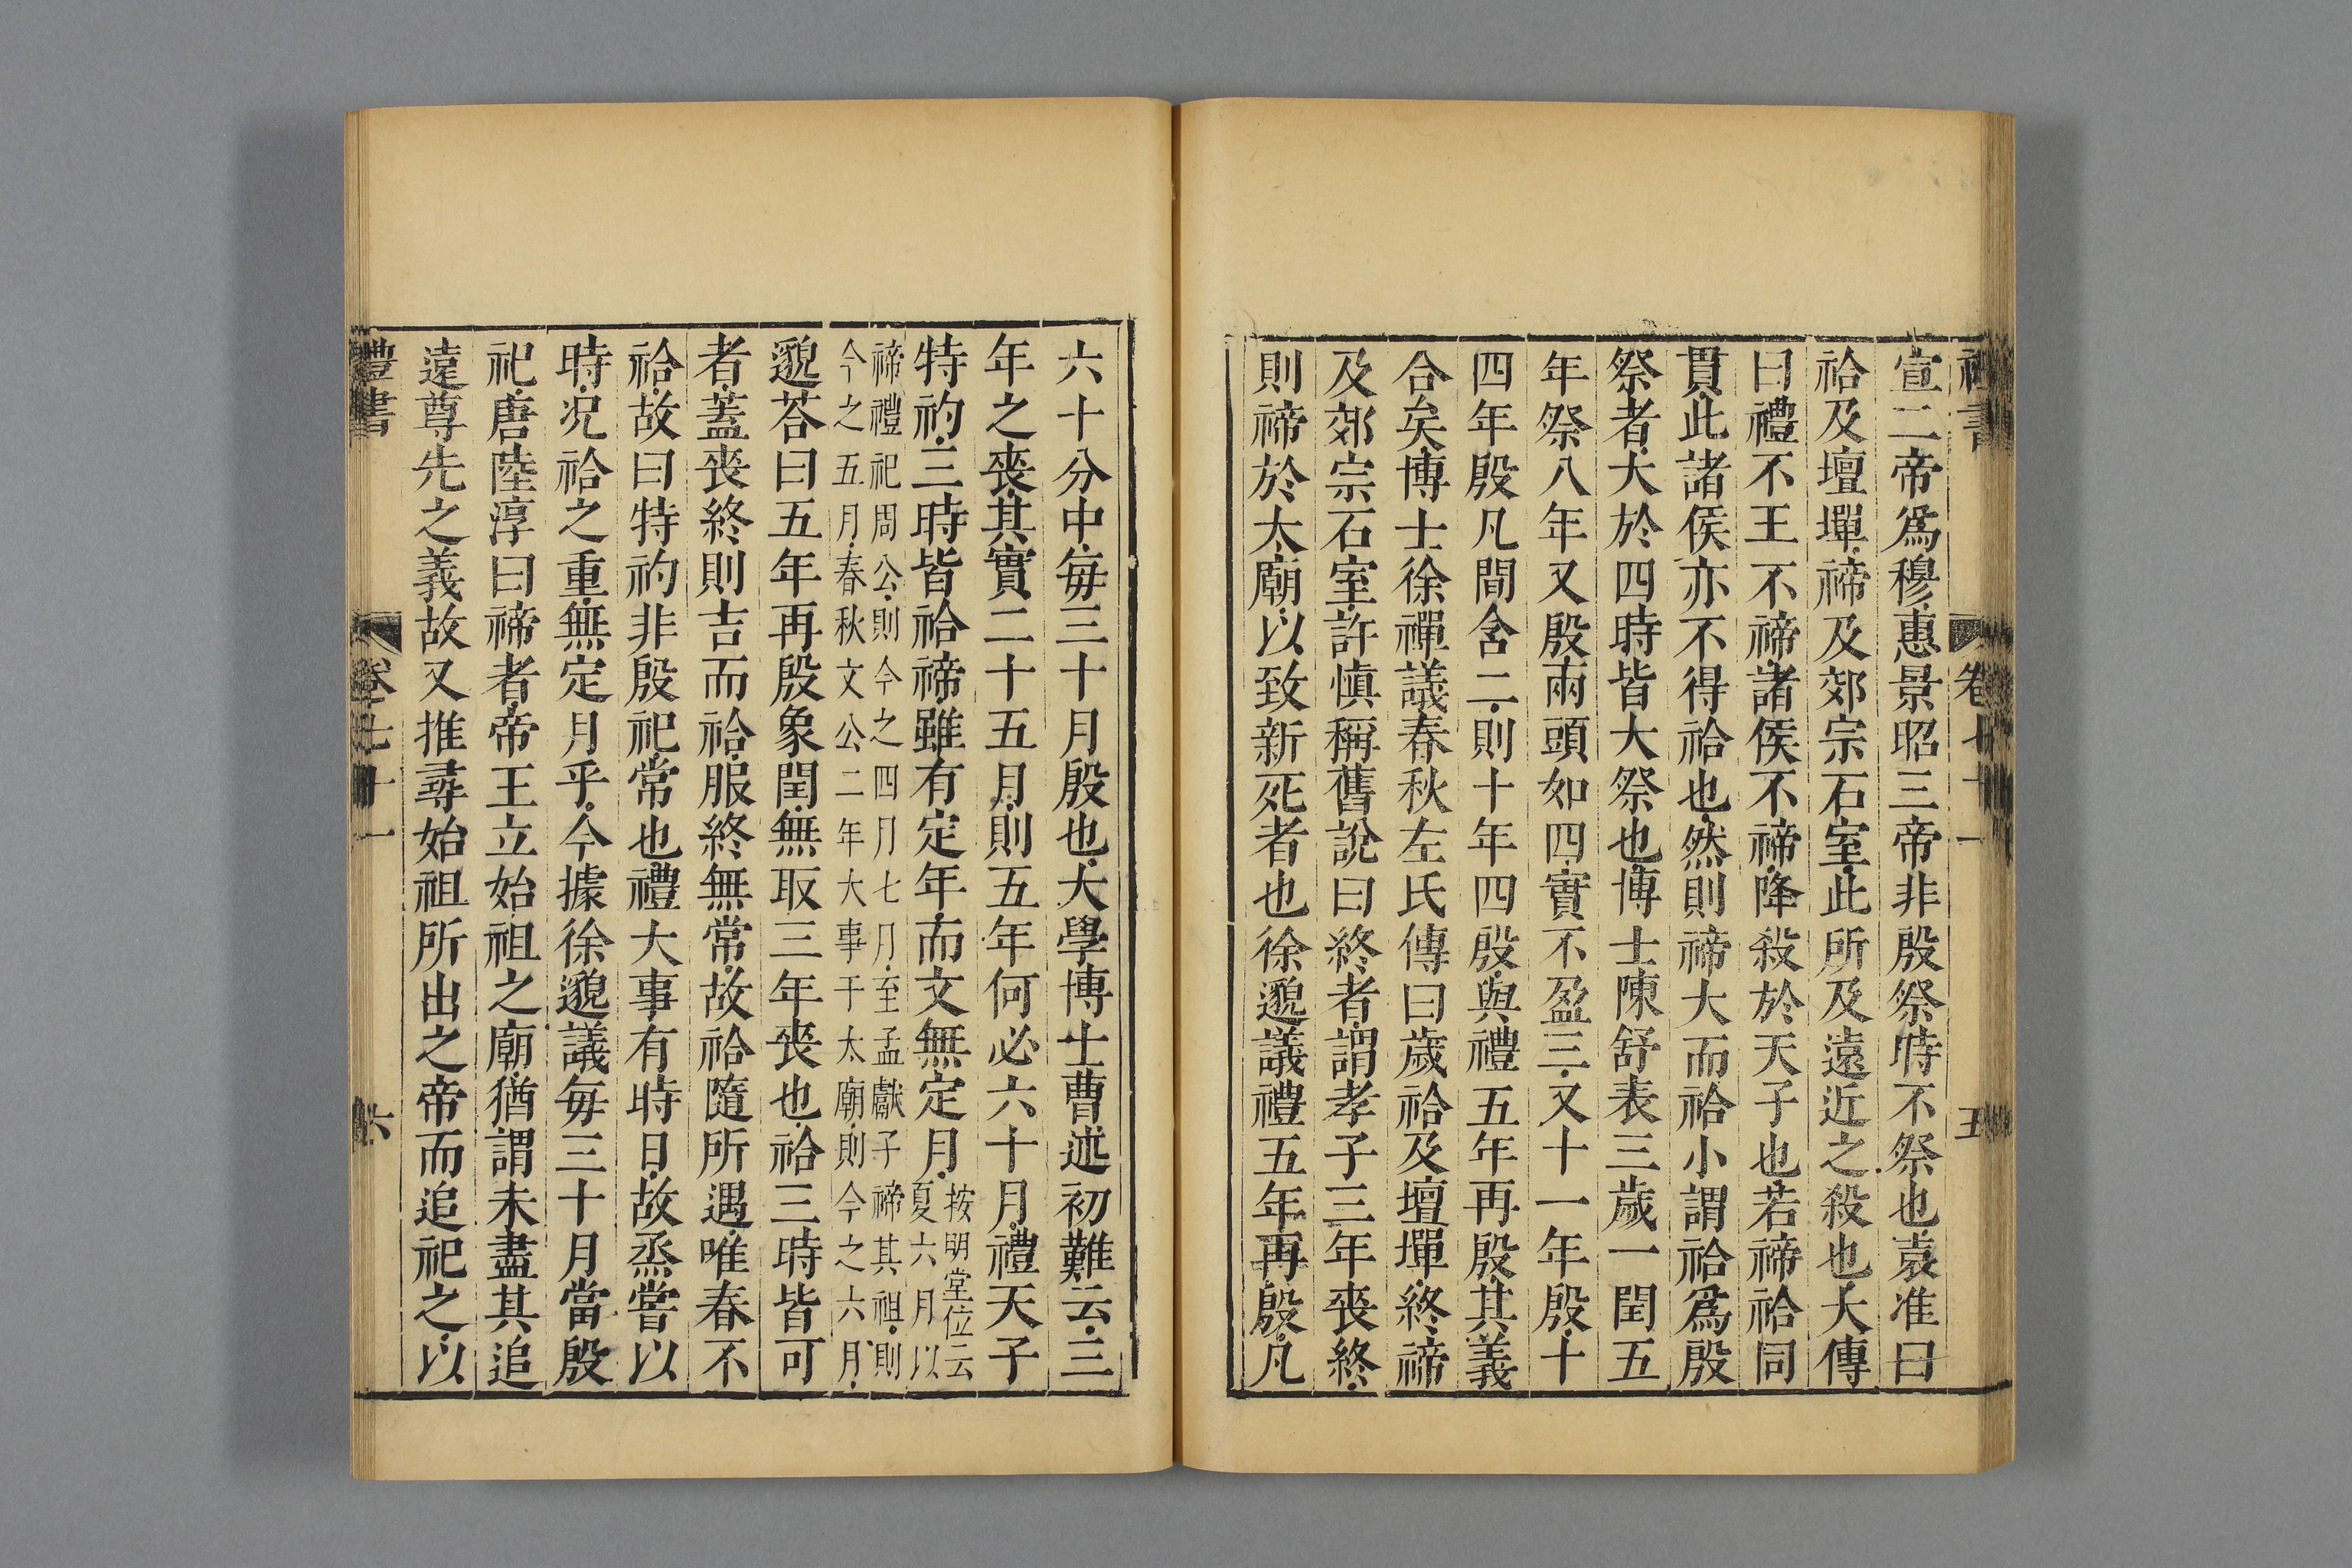 禮書 卷七十一 五
宣二帝爲穆惠景昭三帝非殷祭時不祭也袁准曰
祫及壇墠禘及郊宗石室此所及遠近之殺也大傳
曰禮不王不禘諸侯不禘降殺於天子也若禘祫同
貫此諸侯亦不得祫也然則禘大而祫小謂祫爲殷
祭者大於四時皆大祭也博士陳舒表三歲一閏五
年祭八年又殷兩頭如四實不盈三又十一年殷十
四年殷凡間含二則十年四殷與禮五年再殷其義
合矣博士徐禪議春秋左氏傳曰歲祫及壇墠終禘
及郊宗石室許愼稱舊說曰終者謂孝子三年喪終
則禘於太廟以致新死者也徐邈議禮五年再殷凡
六十分中每三十月殷也大學博士曹述初難云三
年之喪其實二十五月則五年何必六十月禮天子
特礿三時皆祫禘雖有定年而文無定月按明堂位云
夏六月以
禘禮祀周公則今之四月七月至孟獻子禘其祖則
今之五月春秋文公二年大事于太廟則今之六月
邈荅曰五年再殷象閏無取三年喪也祫三時皆可
者蓋喪終則吉而祫服終無常故祫隨所遇唯春不
祫故曰特礿非殷祀常也禮大事有時日故烝嘗以
時況祫之重無定月乎今據徐邈議每三十月當殷
祀唐陸淳曰禘者帝王立始祖之廟猶謂未盡其追
遠尊先之義故又推尋始祖所出之帝而追祀之以
禮書 卷七十一 六